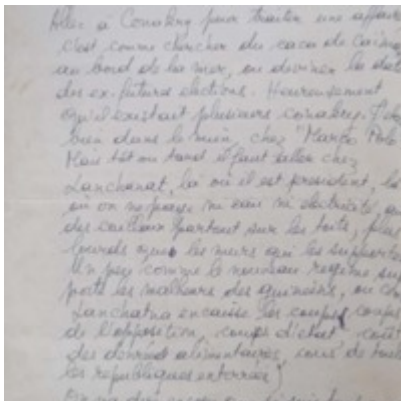 Aller à Conakry pour traiter une affaire
c'est comme chercher du caca de caïman
au bord de la mer, ou deviner la date
des ex-futures elections. Heureusement
qu'il existait plusieurs conakry.
bien dans le mien, chez "Marco Polo
Mais tôt ou tard il faut aller chez
Lanchanat, là où il est president, là
où on ne paye ni eau ni electricité,
des cailloux partout sur les toits, plus
lourds que les murs qui les supporte
Un peu comme le nouveau regime sup
porte les malheurs des guineens, ou
Lanchatna encaisse les coups, coups
de l'opposition, coups d'état, coût
des denrées alimentaires, de
les republiques enterrées)
On